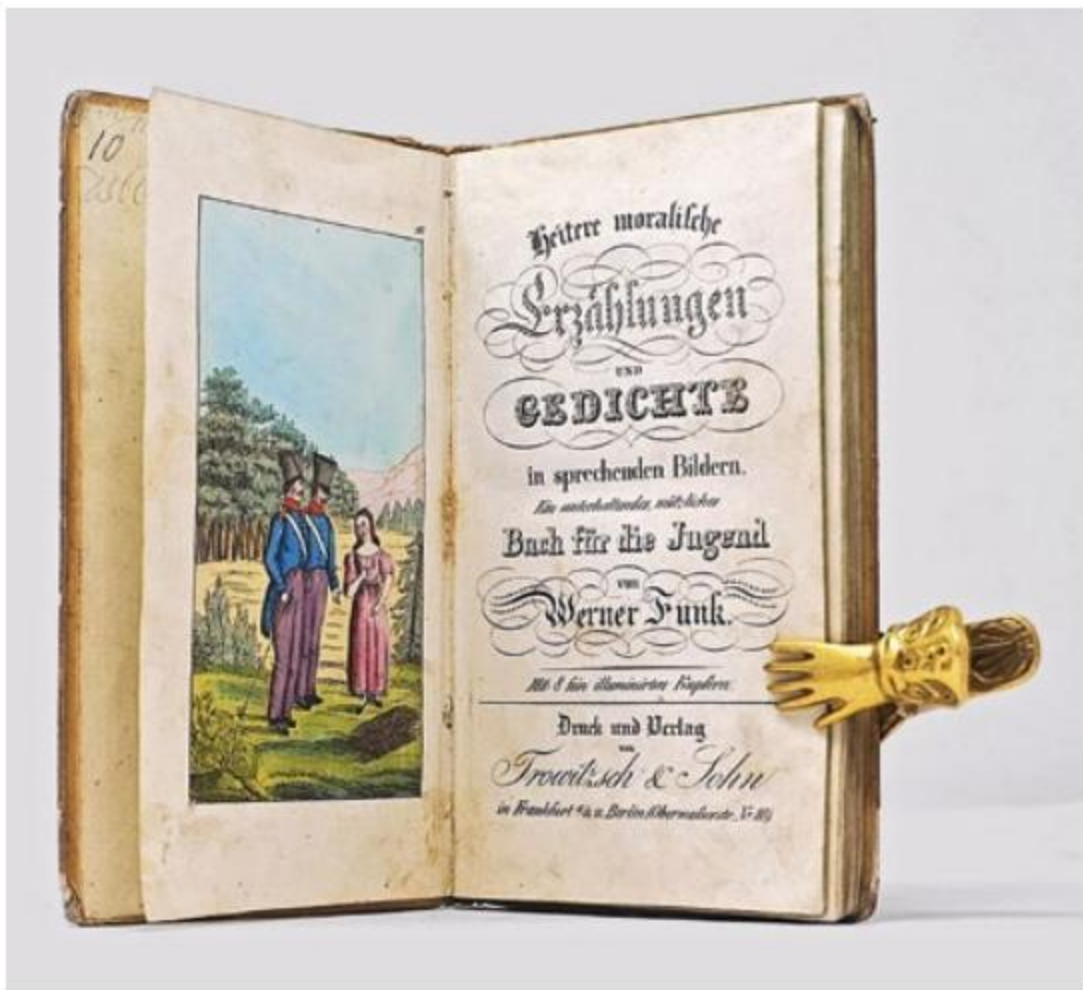 10
Heitere moralische
Erzählungen
UND
GEDICHTE
in sprechenden Bildern.
Ein unterhaltendes, nützliches
Buch für die Jugend
von
Werner Funk.
Mit 8 fein illuminirten Kupfern.
Druck und Verlag
von
Trowitzsch & Sohn
in Frankfurt a/o. u. Berlin